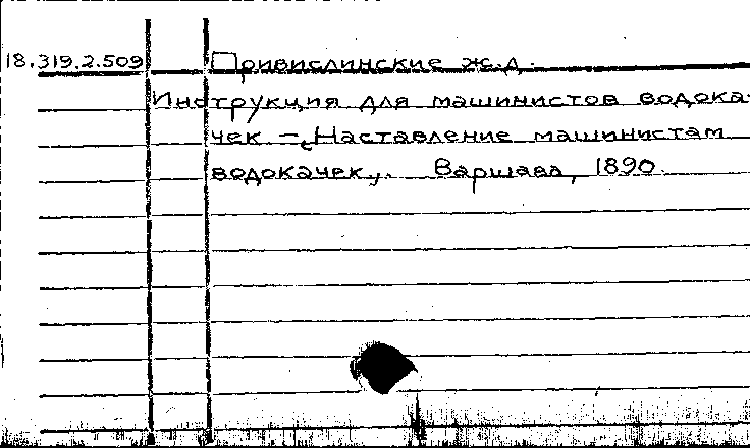 18.319.2.509 Привислинские ж.д.
Инструкция для машинистов водока-
чек – „Наставление машинистам
водокачек„. Варшава, 1890.